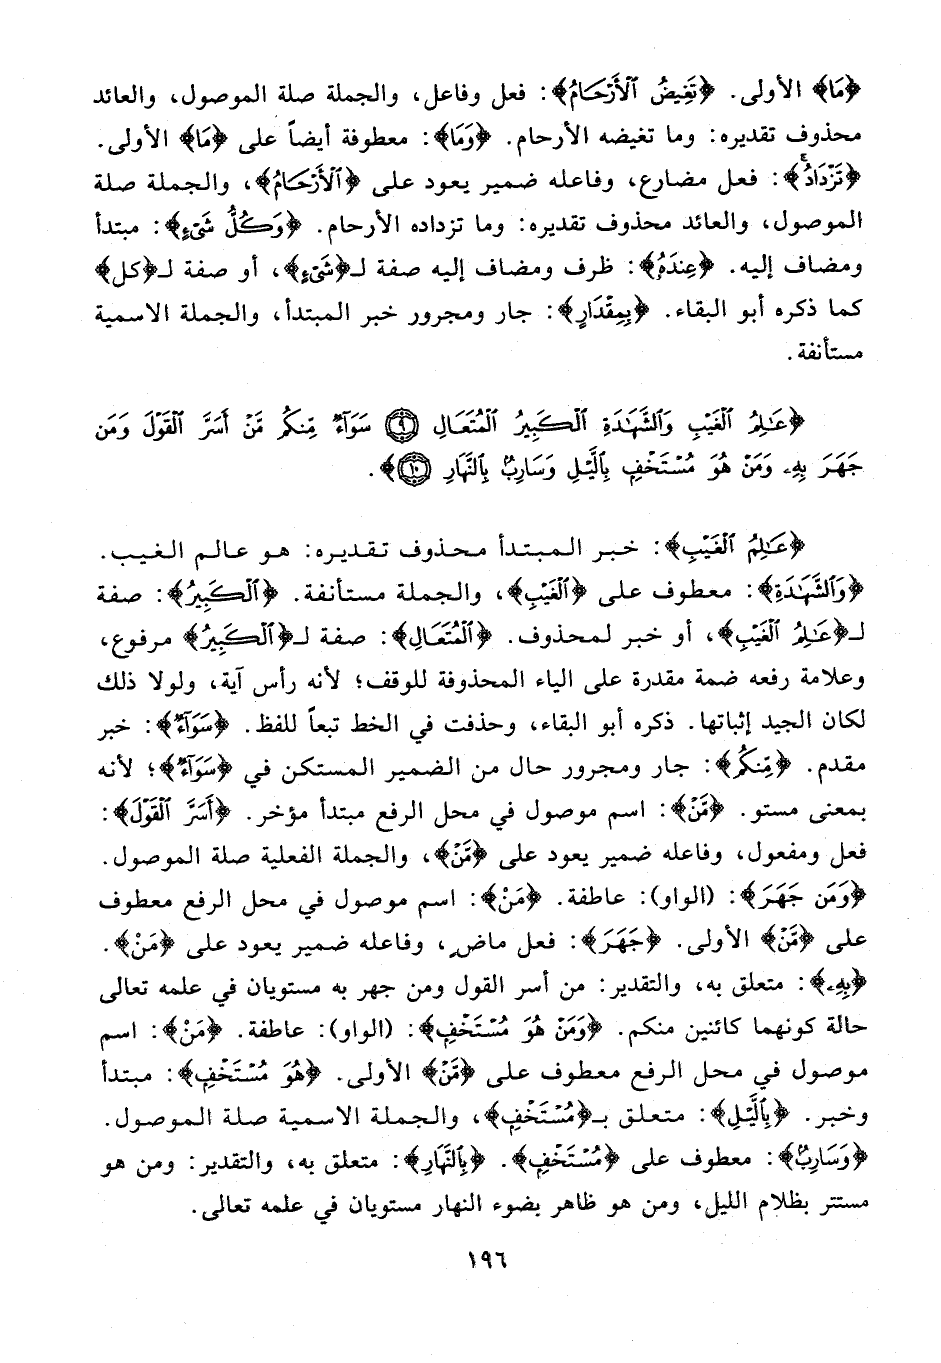 ﴿مَا﴾ الأولى. ﴿تَغِيضُ ٱلْأَرْحَامُ﴾: فعل وفاعل، والجملة صلة الموصول، والعائد
محذوف تقديره: وما تغيضه الأرحام. ﴿وَمَا﴾: معطوفة أيضاً على ﴿مَا﴾ الأولى.
﴿تَزْدَادُ﴾: فعل مضارع، وفاعله ضمير يعود على ﴿ٱلْأَرْحَامُ﴾، والجملة صلة
الموصول، والعائد محذوف تقديره: وما تزداده الأرحام. ﴿وَكُلُّ شَىْءٍ﴾: مبتدأ
ومضاف إليه. ﴿عِندَهُ﴾: ظرف ومضاف إليه صفة لـ﴿شَىْءٍ﴾، أو صفة لـ﴿كل﴾
كما ذكره أبو البقاء. ﴿بِمِقْدَارٍ﴾: جار ومجرور خبر المبتدأ، والجملة الاسمية
مستأنفة.
﴿عَـٰلِمُ ٱلْغَيْبِ وَٱلشَّهَـٰدَةِ ٱلْكَبِيرُ ٱلْمُتَعَالِ ۝٩ سَوَآءٌ مِّنكُم مَّنْ أَسَرَّ ٱلْقَوْلَ وَمَن
جَهَرَ بِهِۦ وَمَنْ هُوَ مُسْتَخْفٍ بِٱلَّيْلِ وَسَارِبٌ بِٱلنَّهَارِ ۝١٠﴾.
﴿عَـٰلِمُ ٱلْغَيْبِ﴾: خبر المبتدأ محذوف تقديره: هو عالم الغيب.
﴿وَٱلشَّهَـٰدَةِ﴾: معطوف على ﴿ٱلْغَيْبِ﴾، والجملة مستأنفة. ﴿ٱلْكَبِيرُ﴾: صفة
لـ﴿عَـٰلِمُ ٱلْغَيْبِ﴾، أو خبر لمحذوف. ﴿ٱلْمُتَعَالِ﴾: صفة لـ﴿ٱلْكَبِيرُ﴾ مرفوع،
وعلامة رفعه ضمة مقدرة على الياء المحذوفة للوقف؛ لأنه رأس آية، ولولا ذلك
لكان الجيد إثباتها. ذكره أبو البقاء، وحذفت في الخط تبعاً للفظ. ﴿سَوَآءٌ﴾: خبر
مقدم. ﴿مِّنكُم﴾: جار ومجرور حال من الضمير المستكن في ﴿سَوَآءٌ﴾؛ لأنه
بمعنى مستو. ﴿مَّنْ﴾: اسم موصول في محل الرفع مبتدأ مؤخر. ﴿أَسَرَّ ٱلْقَوْلَ﴾:
فعل ومفعول، وفاعله ضمير يعود على ﴿مَّنْ﴾، والجملة الفعلية صلة الموصول.
﴿وَمَن جَهَرَ﴾: (الواو): عاطفة. ﴿مَنْ﴾: اسم موصول في محل الرفع معطوف
على ﴿مَّنْ﴾ الأولى. ﴿جَهَرَ﴾: فعل ماضٍ، وفاعله ضمير يعود على ﴿مَنْ﴾.
﴿بِهِۦ﴾: متعلق به، والتقدير: من أسر القول ومن جهر به مستويان في علمه تعالى
حالة كونهما كائنين منكم. ﴿وَمَنْ هُوَ مُسْتَخْفٍ﴾: (الواو): عاطفة. ﴿مَنْ﴾: اسم
موصول في محل الرفع معطوف على ﴿مَّنْ﴾ الأولى. ﴿هُوَ مُسْتَخْفٍ﴾: مبتدأ
وخبر. ﴿بِٱلَّيْلِ﴾: متعلق بـ﴿مُسْتَخْفٍ﴾، والجملة الاسمية صلة الموصول.
﴿وَسَارِبٌ﴾: معطوف على ﴿مُسْتَخْفٍ﴾. ﴿بِٱلنَّهَارِ﴾: متعلق به، والتقدير: ومن هو
مستتر بظلام الليل، ومن هو ظاهر بضوء النهار مستويان في علمه تعالى.
١٩٦